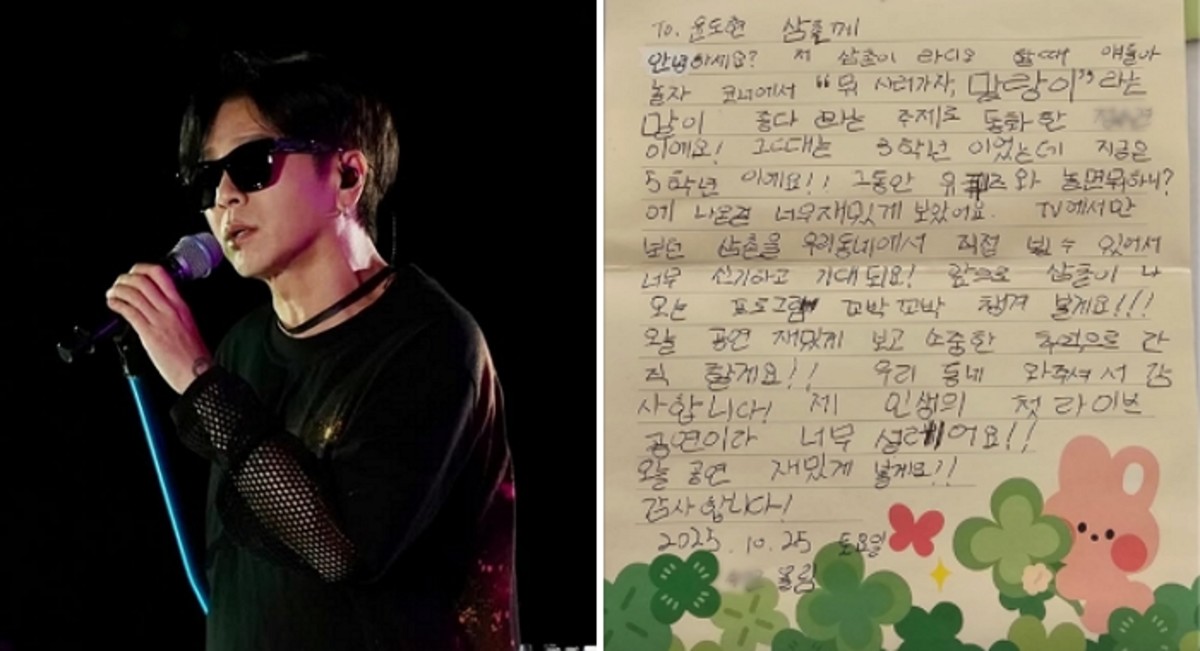 To. 윤도현 삼촌께
안녕하세요? 저 삼촌이 라디오 할때 얘들아
놀자 코너에서 "뭐 사러가자, 말랑이" 라는
말이 좋다 라는 주제로 통화 한
이에요! 그때는 3학년 이었는데 지금은
5학년 이에요!! 그동안 유퀴즈와 놀면뭐하니?
에 나온걸 너무재밌게 보았어요. TV에서만
보던 삼촌을 우리동네에서 직접 볼 수 있어서
너무 신기하고 기대 되요! 앞으로 삼촌이 나
오는 프로그램 꼬박꼬박 챙겨 볼게요!!!
오늘 공연 재밌게 보고 소중한 추억으로 간
직 할게요!! 우리 동네 와주셔서 감
사합니다! 제 인생의 첫 라이브
공연이라 너무 설레어요!!
오늘 공연 재밌게 볼게요!!
감사합니다!
2025. 10. 25 토요일
올림